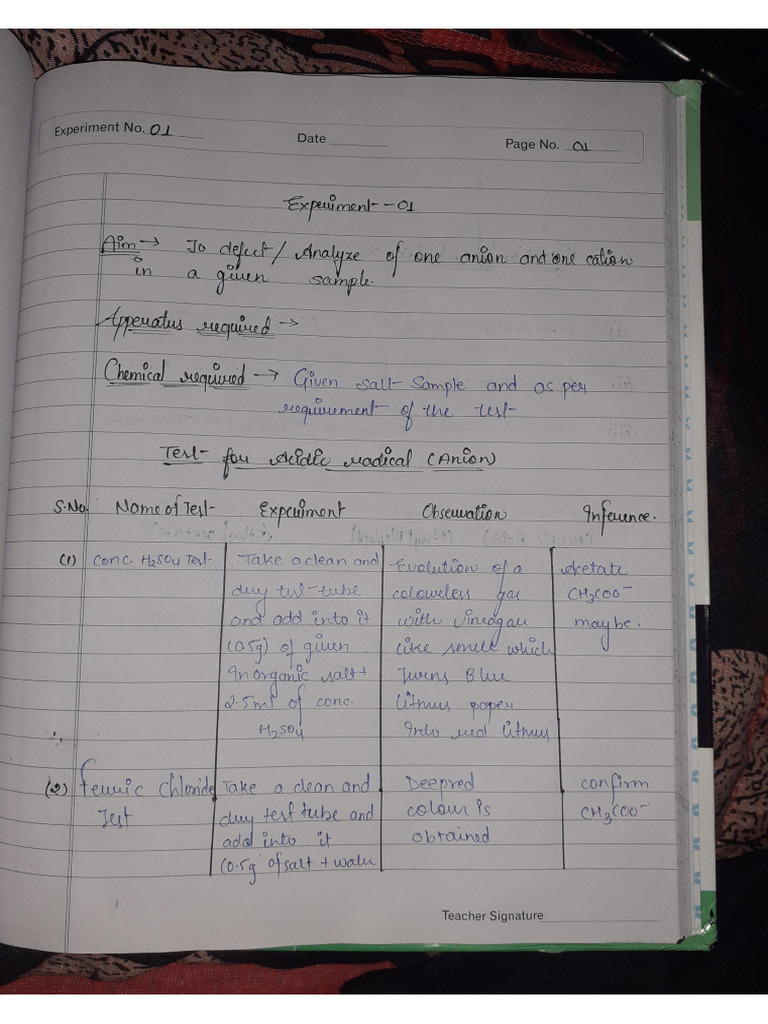 Experiment No. 01
Date
Page No. 01
Experiment--01
Aim → To defect/ Analyze of one anion and one cation
in a given sample.
Apperatus required →
Chemical required → Given salt Sample and as per
requirement of the test
Test for Acidic radical (Anion)
S.No. Name of Test Experiment Observation Inference.
(1) conc. H2SO4 Test Take a clean and Evolution of a Acetate
dry tst-tube colourless gas CH3COO-
and add into it with vineagar maybe.
(0.5g) of given like smell which
Inorganic salt + Turns Blue
2.5ml of conc. litmus paper
H2SO4 Into red litmus
(2) ferric chloride Take a clean and Deepred confirm
Test dry test tube and colour is CH3COO-
add into it obtained
(0.5g of salt + water
Teacher Signature